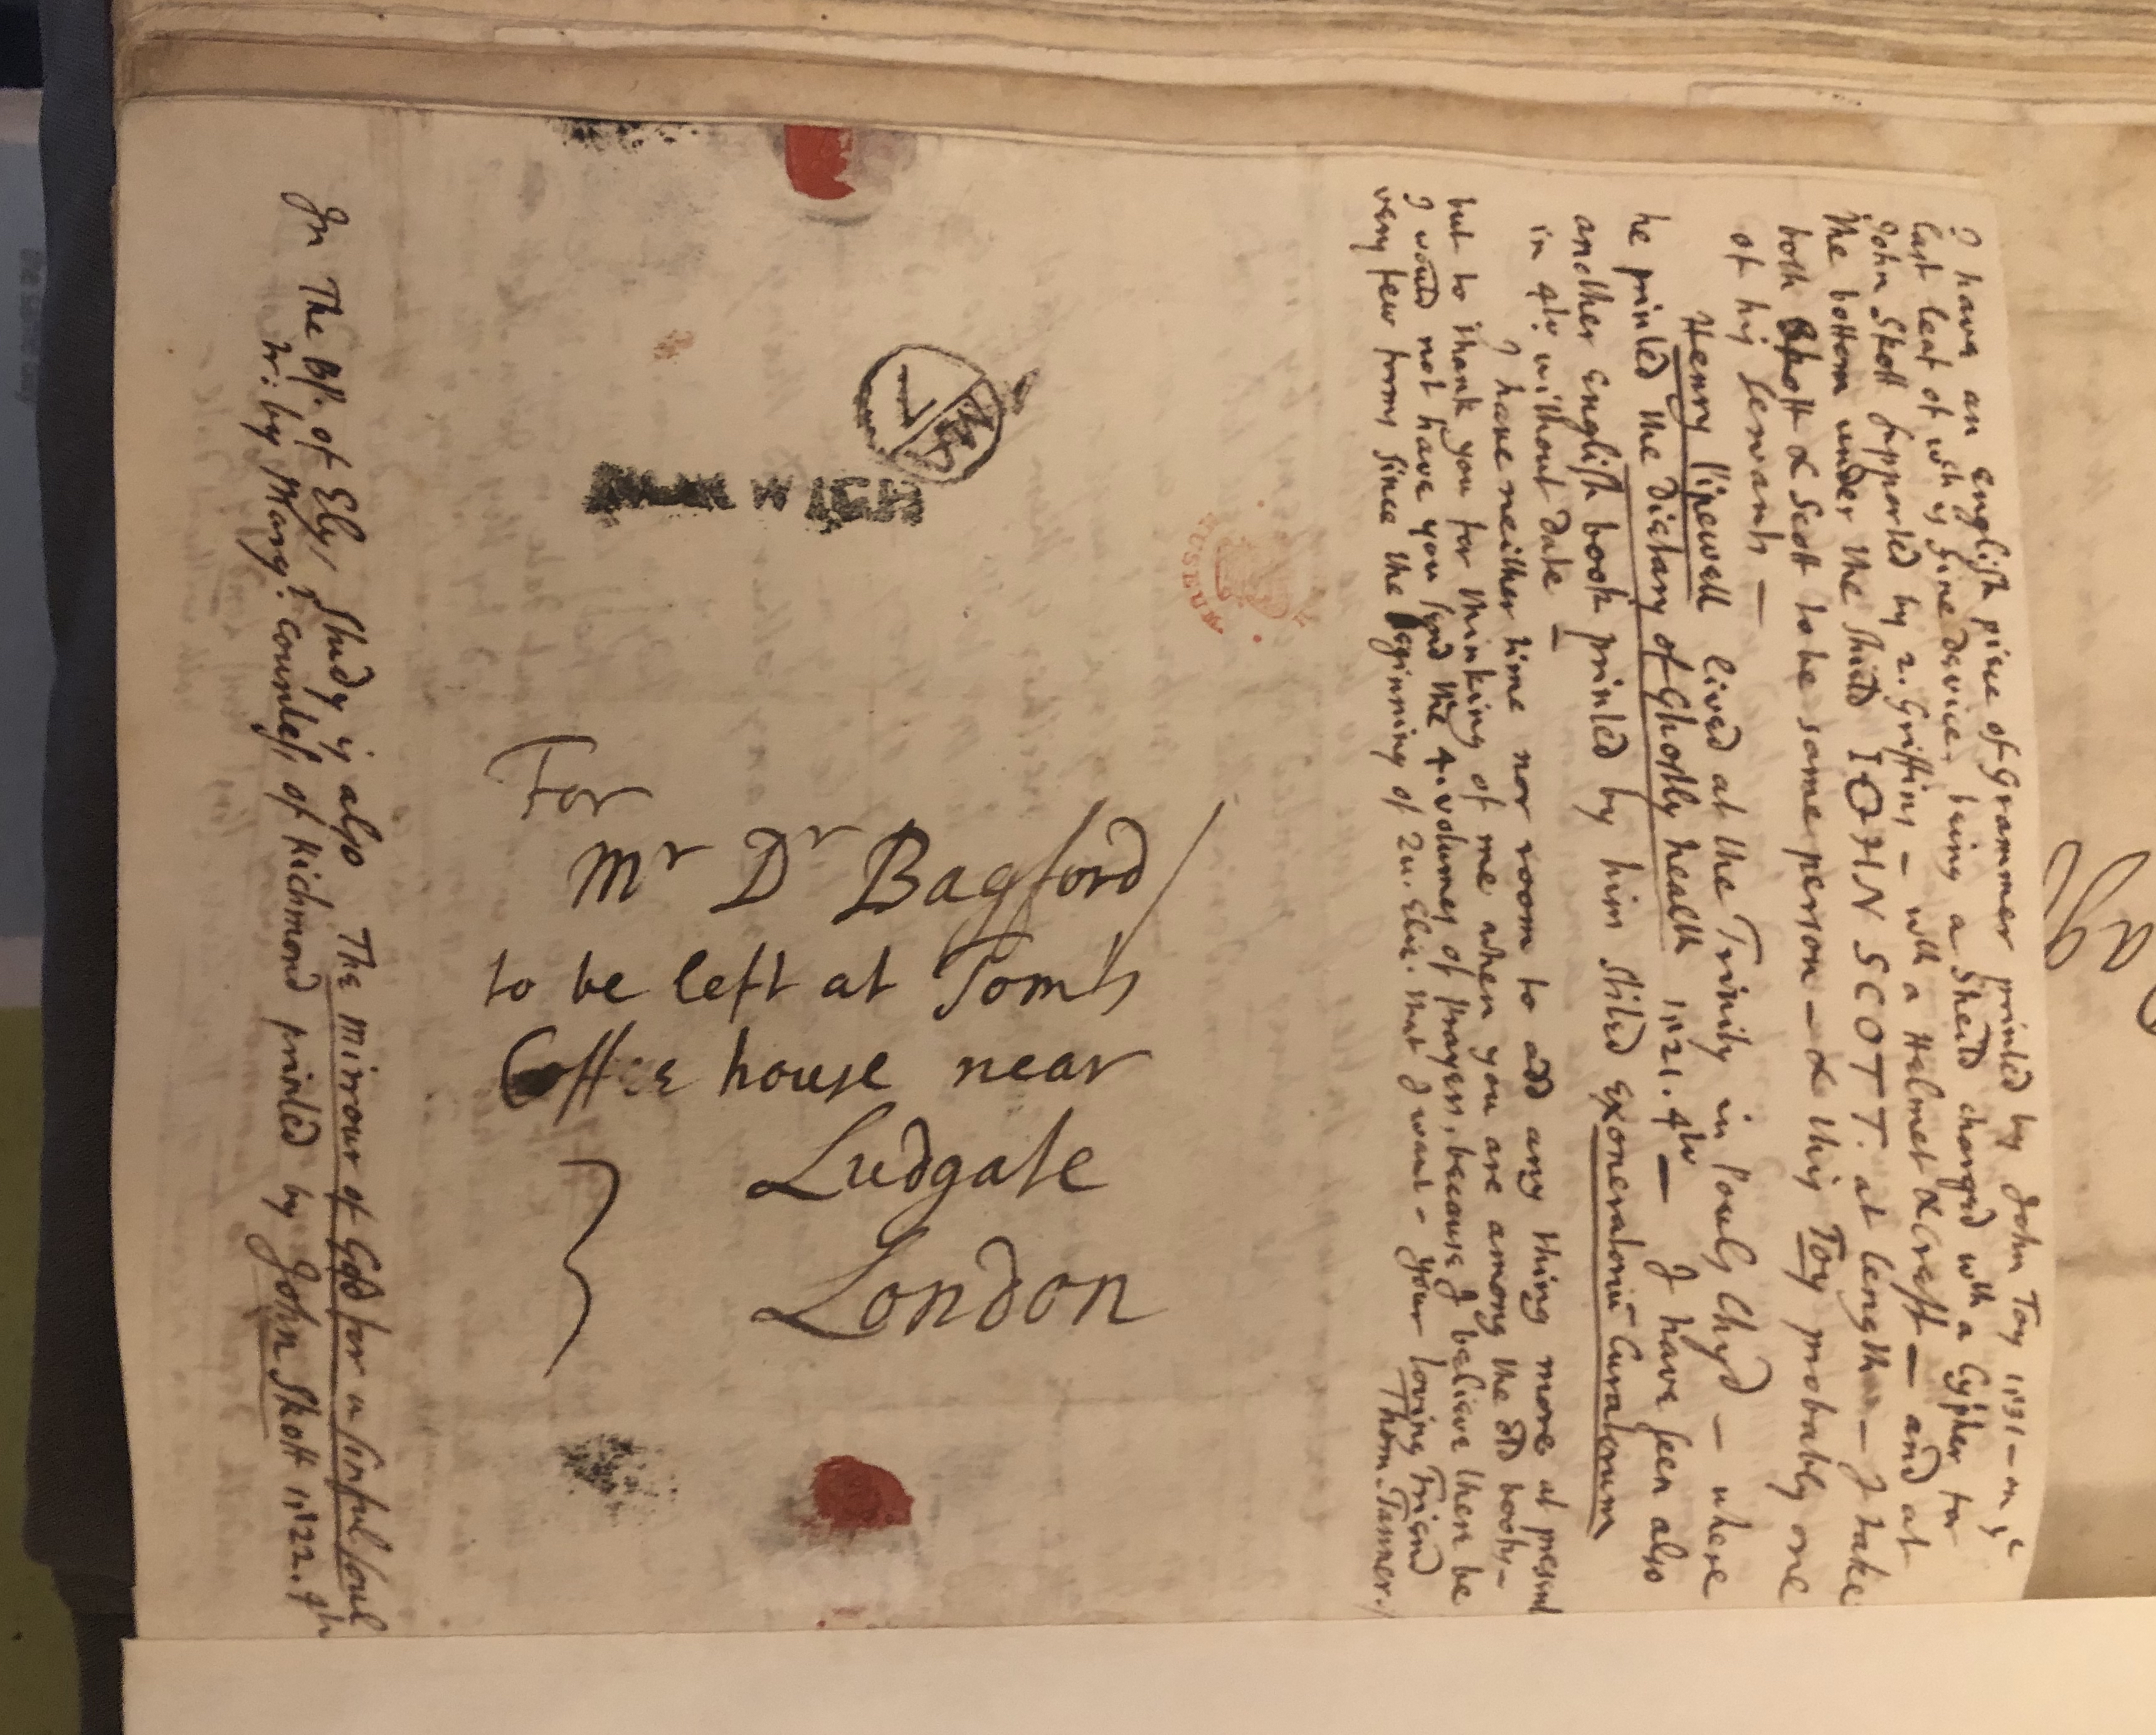 I have an english piece of Grammer printed by John Toy 1531 - in ye
last leaf of wch is Sine device, being a Sheild charged wth a Cypher for
John Skott supported by 2. Griffins - with a Helmet & Crest - and at
the bottom under the shield IOHN SCOTT. at length - I take
both Skott & Scott to be same person - & this Toy probably one
of his servants -
Henry Pepwell lived at the Trinity in Pouls Chyd - where
he printed the Dietary of Ghostly health 1521. 4to - I have seen also
another English book printed by him stiled Exoneratoriū Curatorum
in 4to without Date -
I have neither time nor room to add any thing more at present
but to thank you for thinking of me when you are among the old books -
I would not have you send the 4. volumes of prayers, because I believe there be
very few forms since the beginning of Qu. Eliz. that I want - your loving Friend
Thom. Tanner.
For
Mr Dr Bagford
to be left at Tom's
Coffee house near
Ludgate
London
NORWICH
MUSEUM
In The Bp. of Ely's Study is also The mirrour of God for a sinful soul
tr: by Marg: Countess of Richmond printed by John Skott 1522. 4to